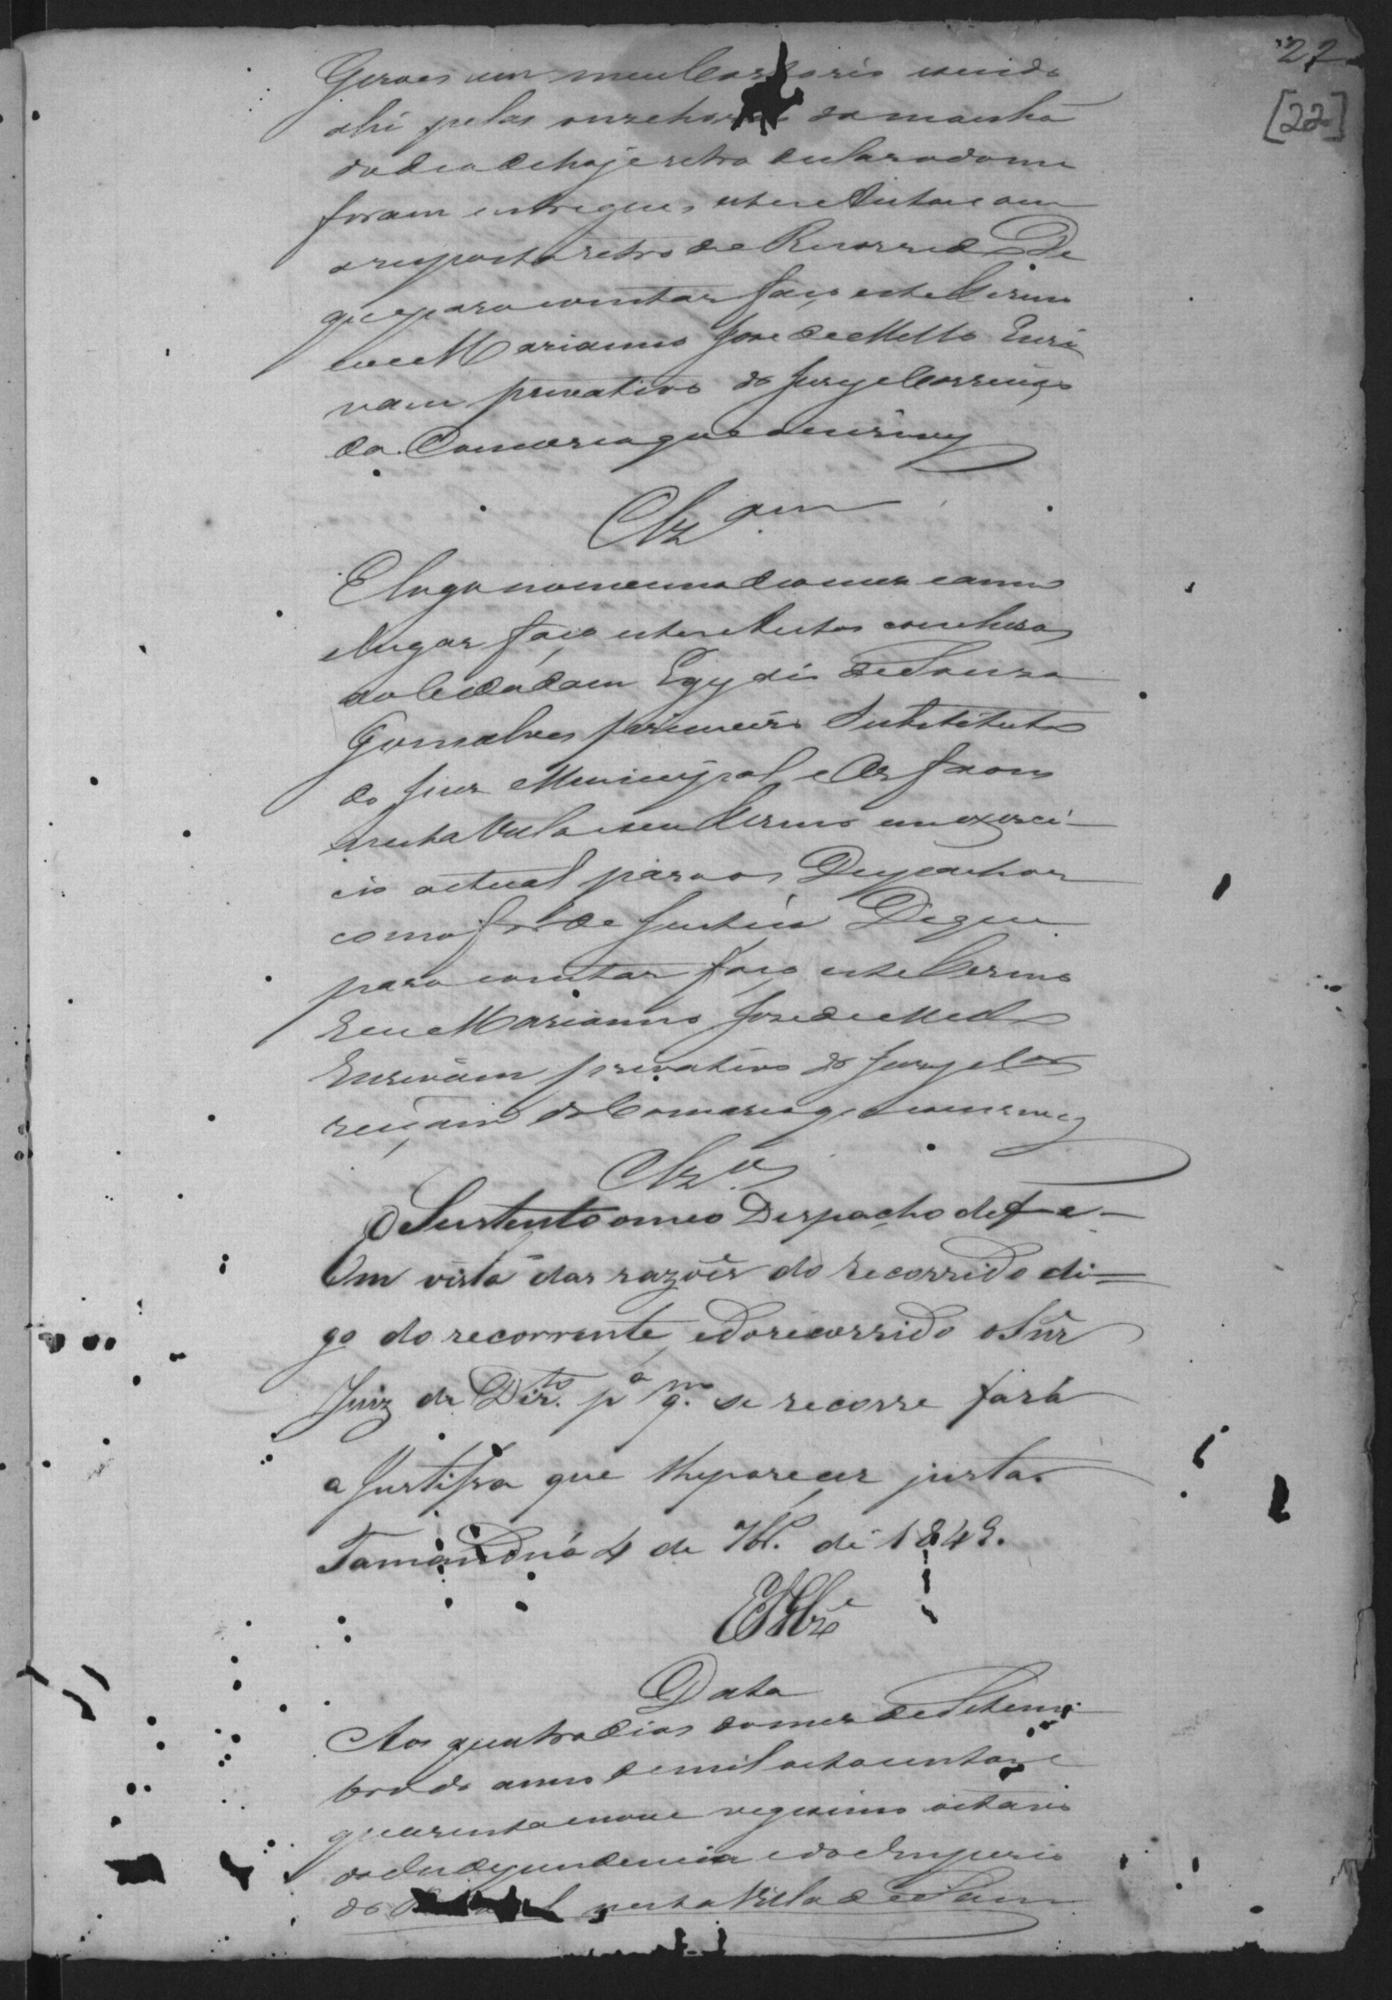 22
[22]
Geraes em meu Cartorio sendo
ahi pelas onze horas da manhã
do dia de hoje retro declarado me
foram entregues estes Autos com
a resposta retro do Recorrido De
que para constar faço este Termo
eu Marianno José de Mello Escri
vam privativo do Jury e Correição
da Comarca que o escrevy
Clzam
E logo no mesmo dia mez e anno
e lugar faço estes Autos conclusos
ao Cidadam Egydio de Souza
Gonsalves primeiro Substituto
do Juiz Municipal e Orfaons
nesta Villa e seu Termo em exerci-
cio actual para os Despachar
como for de Justiça De que
para constar faço este Termo
Eu Marianno José de Mello
Escrivam privativo do Jury e Cor
reiçam da Comarca que o escrevy
Clzos
Sustento o meo Despacho de f
Em vista das razões do recorrido di=
go do recorrente, e do recorrido o Snr
Juiz de Dirto. pa qm. se recorre fará
a Justissa que lhe parecer justa.
Tamanduá 4 de 7br. de 1849.
Data
Aos quatro dias do mez de Setem-
bro do anno de mil oitocentos e
quarenta e nove vigesimo oitavo
da Independencia e do Imperio
do Brasil nesta Villa de Sam